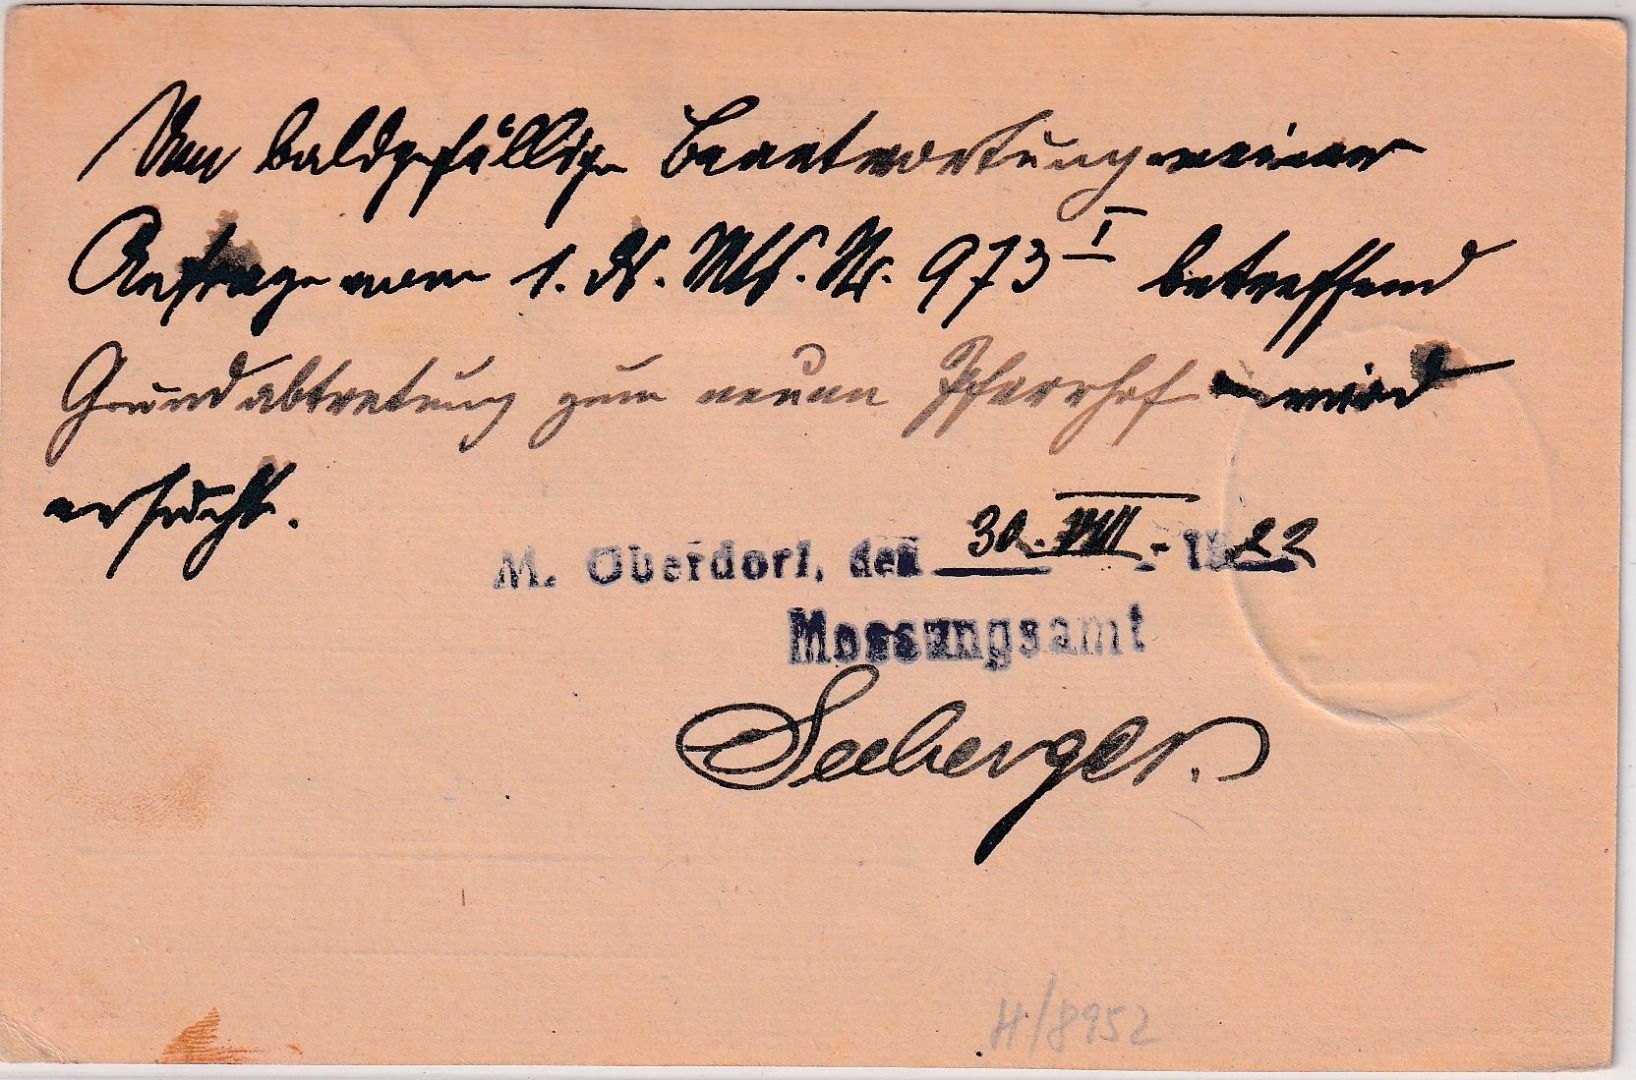 Um baldgefällige Beantwortung meiner
Anfrage vom 1. ds. Mts. Nr. 973 I betreffend
Grundabtretung zum neuen Pfarrhof wird
ersucht.
M. Oberdorf, den 30. VIII. 1922
Messungsamt
Seeberger.
H/8952